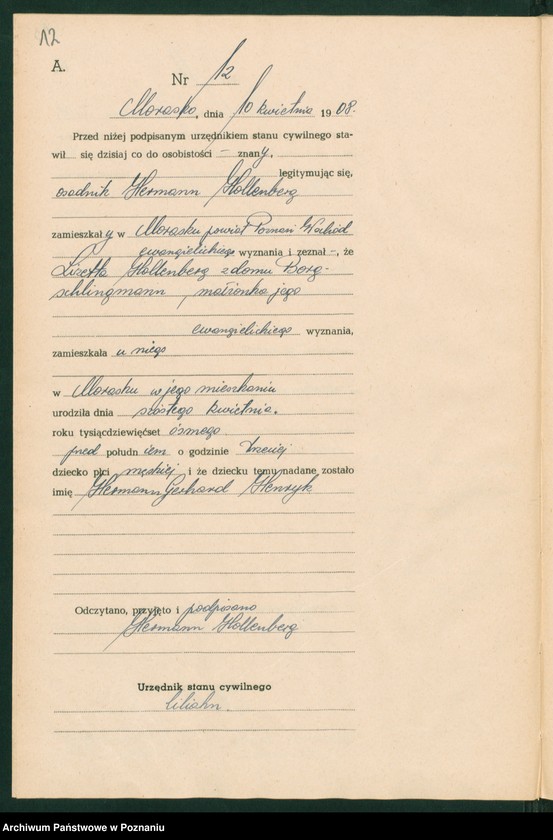 12
A.
Nr 12
Morasko, dnia 10 kwietnia 1908.
Przed niżej podpisanym urzędnikiem stanu cywilnego sta-
wił się dzisiaj co do osobistości – znany,
legitymując się,
osadnik Hermann Hollenberg
zamieszkały w Morasku powiat Poznań Wschód
ewangielickiego wyznania i zeznał –, że
Lizetta Hollenberg z domu Borg-
schlingmann, małżonka jego
ewangielickiego wyznania,
zamieszkała u niego
w Morasku w jego mieszkaniu
urodziła dnia szóstego kwietnia.
roku tysiącdziewięćset ósmego
przed południem o godzinie trzeciej
dziecko płci męskiej i że dziecku temu nadane zostało
imię Hermann Gerhard Henryk
Odczytano, przyjęto i podpisano
Hermann Hollenberg
Urzędnik stanu cywilnego
Archiwum Państwowe w Poznaniu